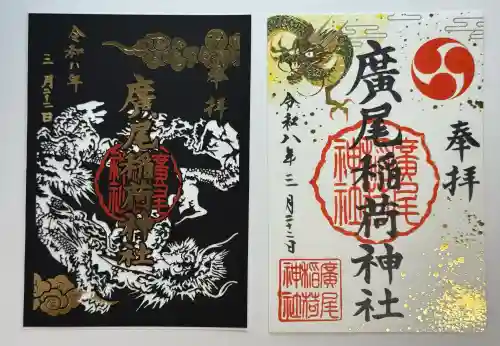 奉拝
廣尾稲荷神社
廣尾稲荷神社
令和八年
三月二二日
奉拝
廣尾稲荷神社
廣尾稲荷神社
令和八年三月二二日
廣尾稲荷神社